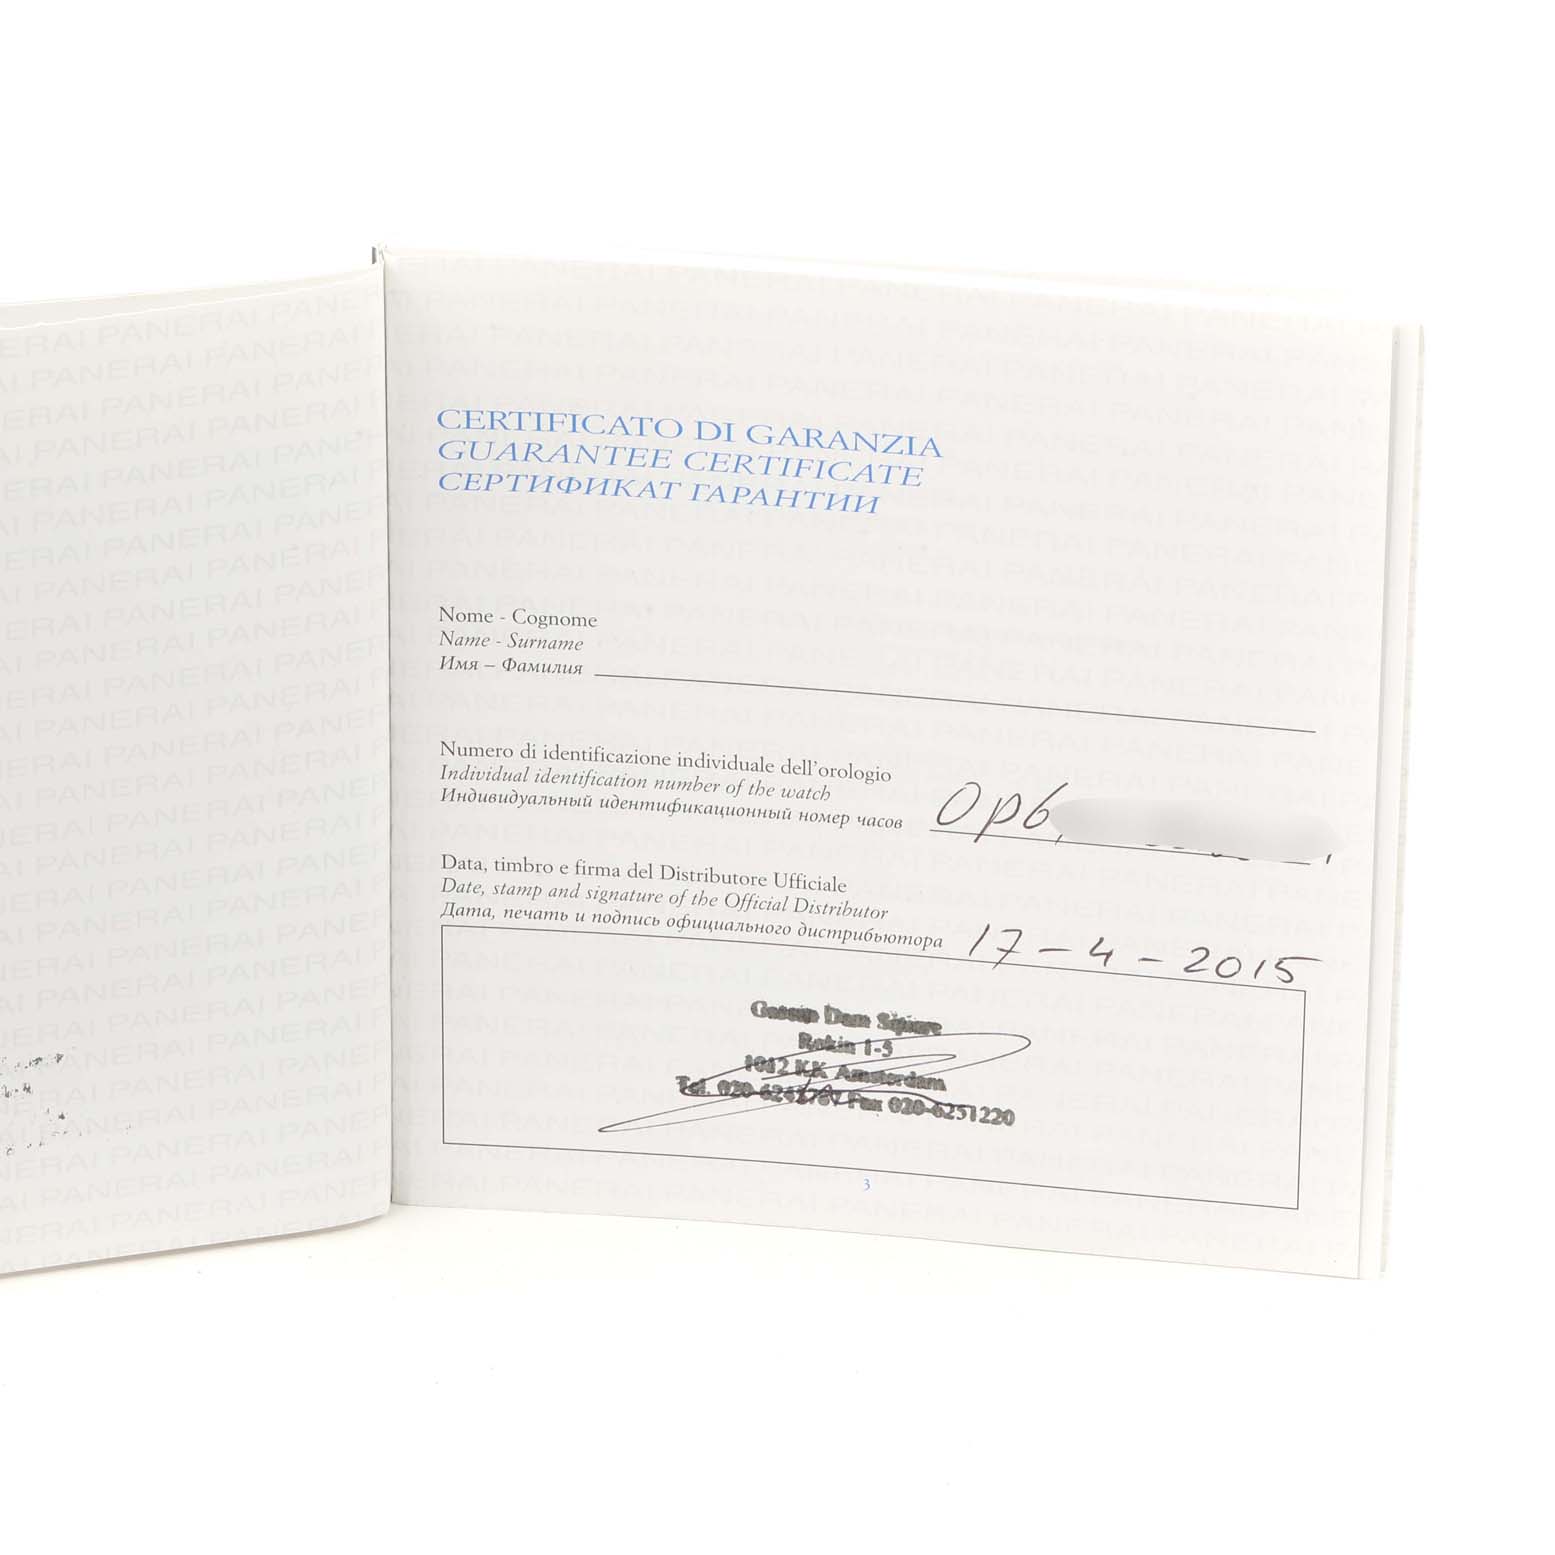 CERTIFICATO DI GARANZIA
GUARANTEE CERTIFICATE
СЕРТИФИКАТ ГАРАНТИИ
Nome - Cognome
Name - Surname
Имя – Фамилия
Numero di identificazione individuale dell'orologio
Individual identification number of the watch
Индивидуальный идентификационный номер часов
Op6
Data, timbro e firma del Distributore Ufficiale
Date, stamp and signature of the Official Distributor
Дата, печать и подпись официального дистрибьютора
17-4-2015
Gassan Dam Square
Rokin 1-5
1012 KK Amsterdam
Tel. Fax 020-6251220
3